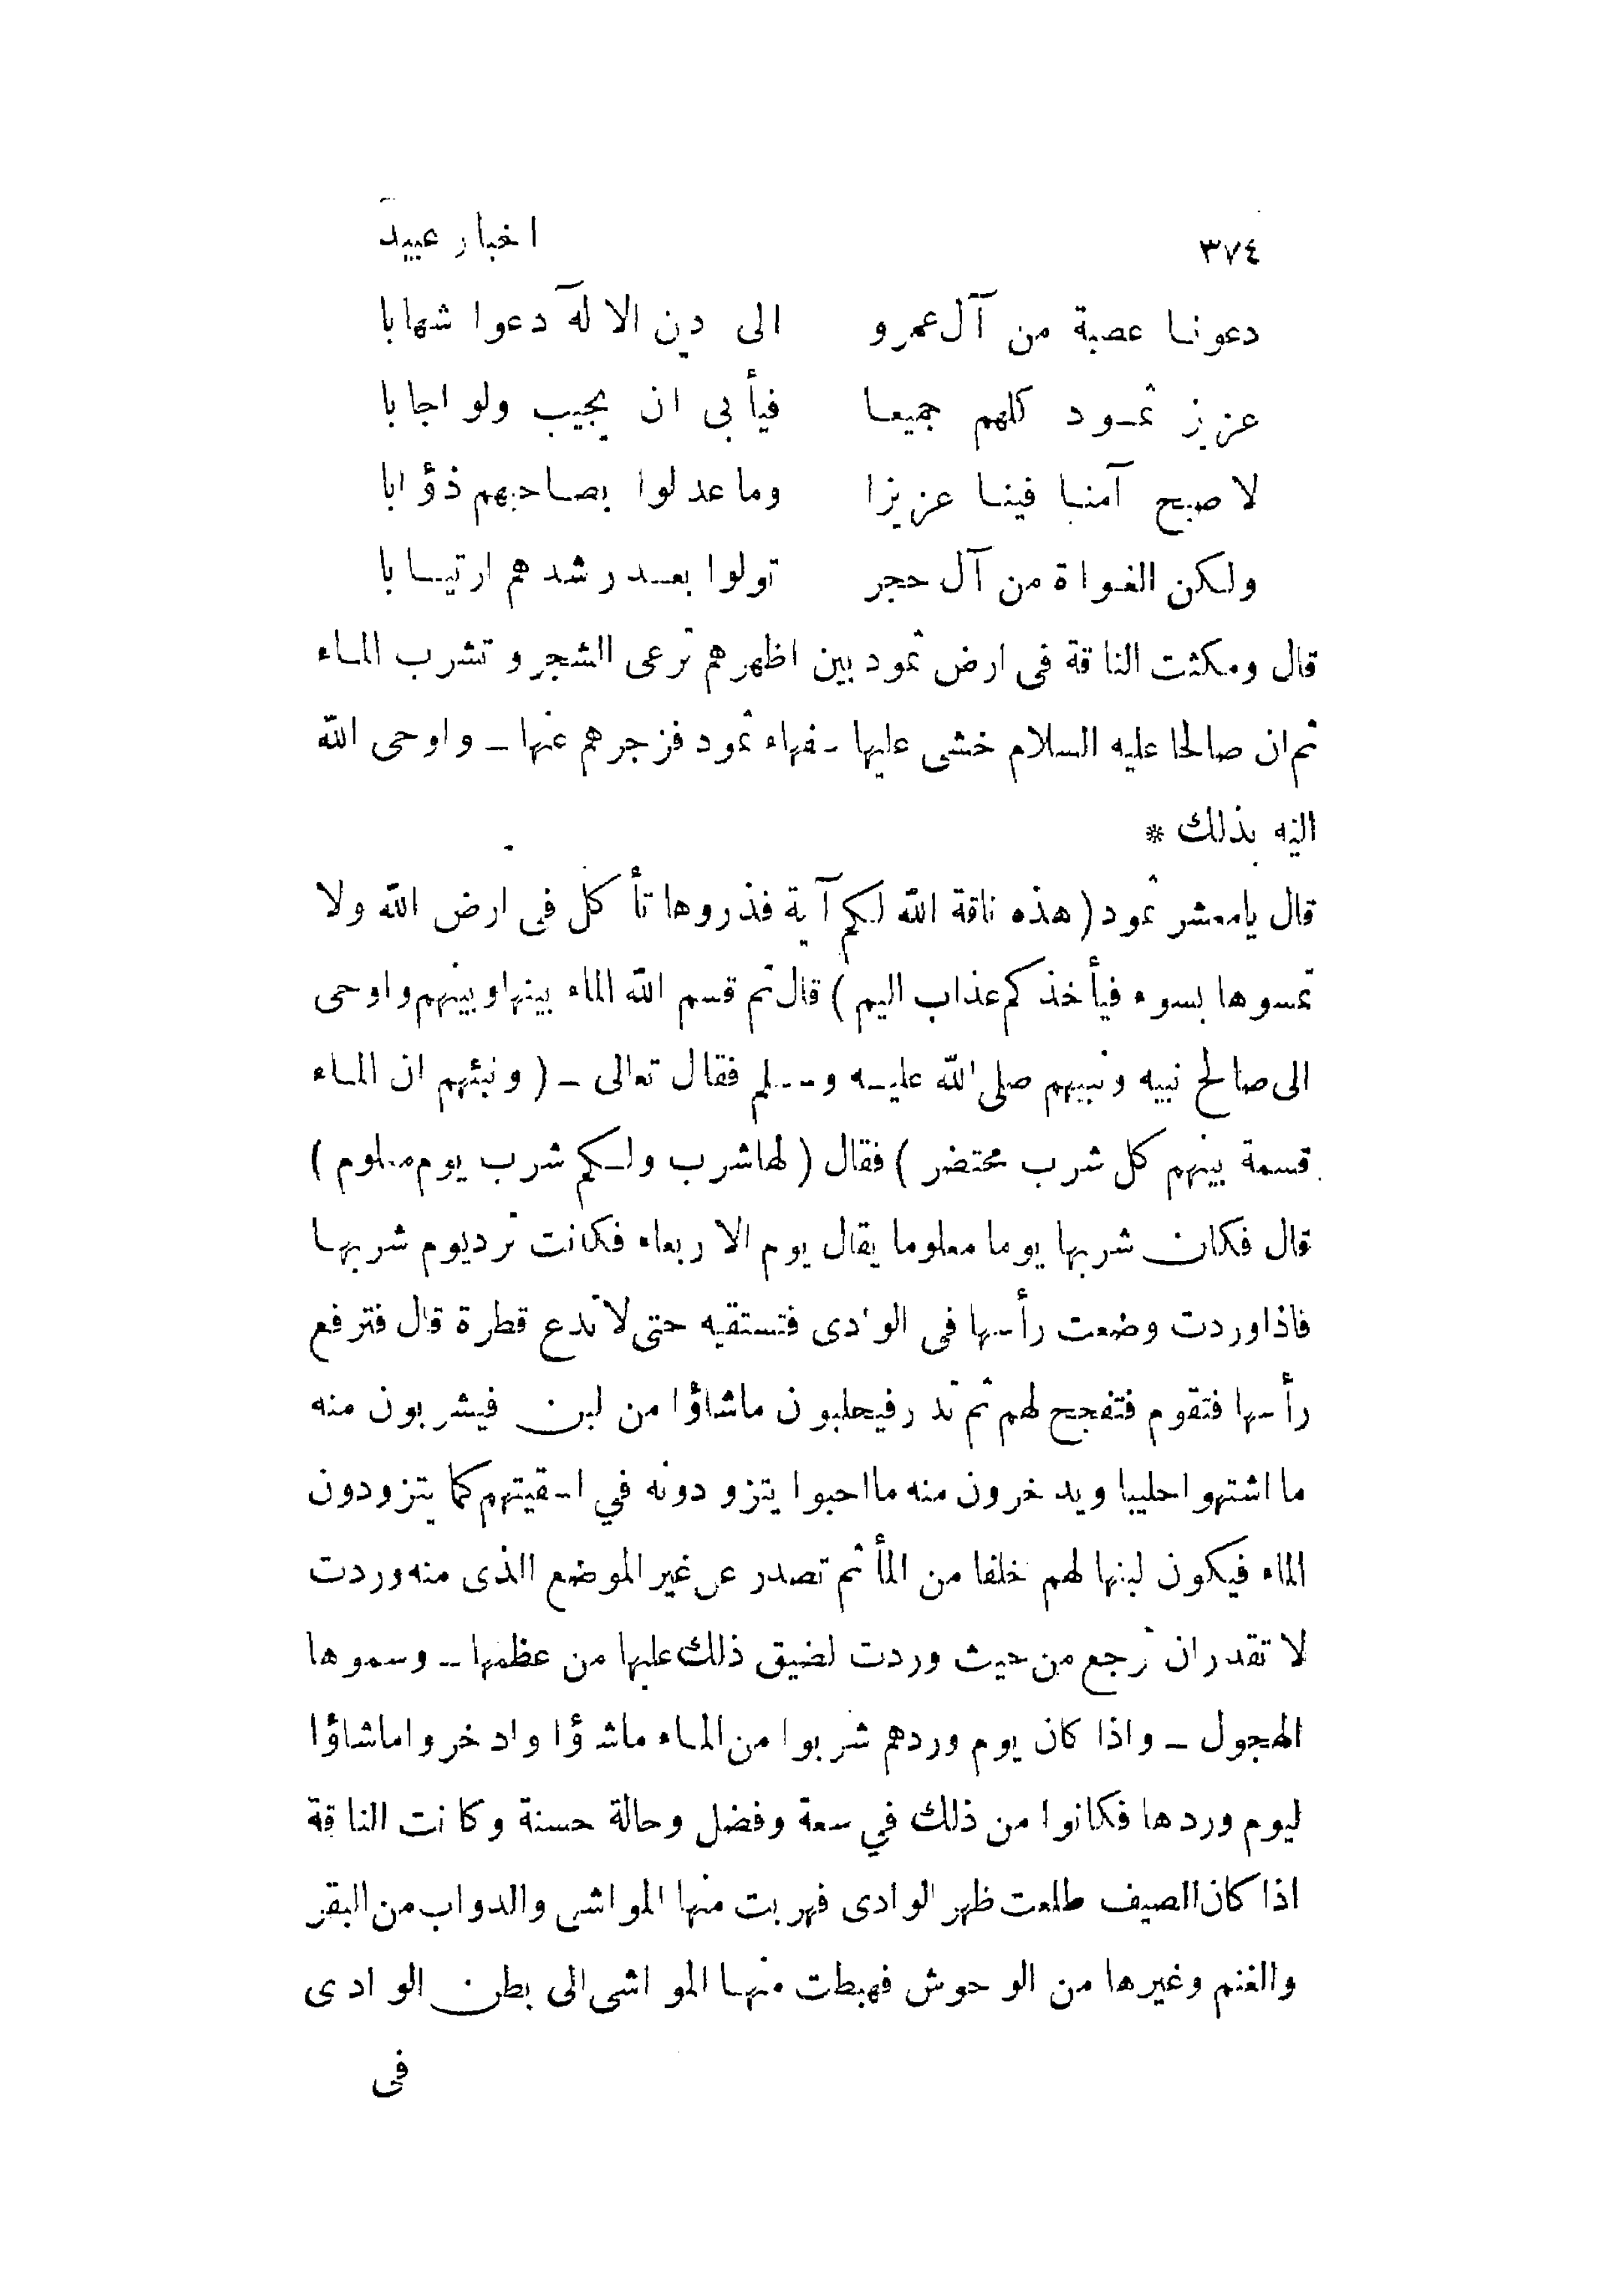 ٣٧٤ اخبار عبيد
دعونا عصبة من آل عمرو الى دين الاله دعوا شهابا
عزيز ثمود كلهم جميعا فيأبى ان يجيب ولو اجابا
لاصبح آمنا فينا عزيزا وما عدلوا بصاحبهم ذؤابا
ولكن الغواة من آل حجر تولوا بعد رشدهم ارتيابا
قال ومكثت الناقة فى ارض ثمود بين اظهرهم ترعى الشجر وتشرب الماء
ثم ان صالحا عليه السلام خشى عليها سفهاء ثمود فزجرهم عنها ـ واوحى الله
اليه بذلك *
قال يا معشر ثمود (هذه ناقة الله لكم آية فذروها تأكل فى ارض الله ولا
تمسوها بسوء فيأخذكم عذاب اليم) قال ثم قسم الله الماء بينها وبينهم واوحى
الى صالح نبيه ونبيهم صلى الله عليه وسلم فقال تعالى ـ (ونبئهم ان الماء
قسمة بينهم كل شرب محتضر) فقال (لها شرب ولكم شرب يوم معلوم)
قال فكان شربها يوما معلوما يقال يوم الاربعاء فكانت ترد يوم شربها
فاذا وردت وضعت رأسها فى الوادى فتستقيه حتى لا تدع قطرة قال فترفع
رأسها فتقوم فتفجح لهم ثم تدر فيحلبون ماشاؤا من لبن فيشربون منه
ما اشتهوا حليبا ويدخرون منه ما احبوا يتزودونه في اسقيتهم كما يتزودون
الماء فيكون لبنها لهم خلفا من المأ ثم تصدر عن غير الموضع الذى منه وردت
لا تقدر ان ترجع من حيث وردت لضيق ذلك عليها من عظمها ـ وسموها
الهجول ـ واذا كان يوم وردهم شربوا من الماء ماشاؤا وادخروا ماشاؤا
ليوم وردها فكانوا من ذلك في سعة وفضل وحالة حسنة وكانت الناقة
اذا كان الصيف طلعت ظهر الوادى فهربت منها المواشى والدواب من البقر
والغنم وغيرها من الوحوش فهبطت منها المواشى الى بطن الوادى
فى